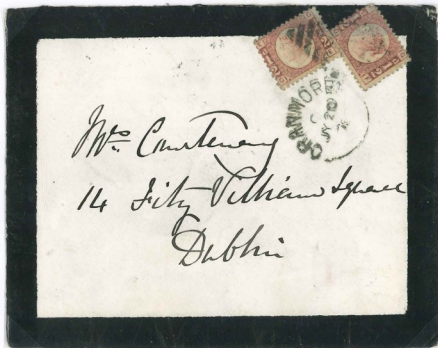 ORANMORE
C
JY 20
Mrs Courtenay
14 Fitz William Square
Dublin